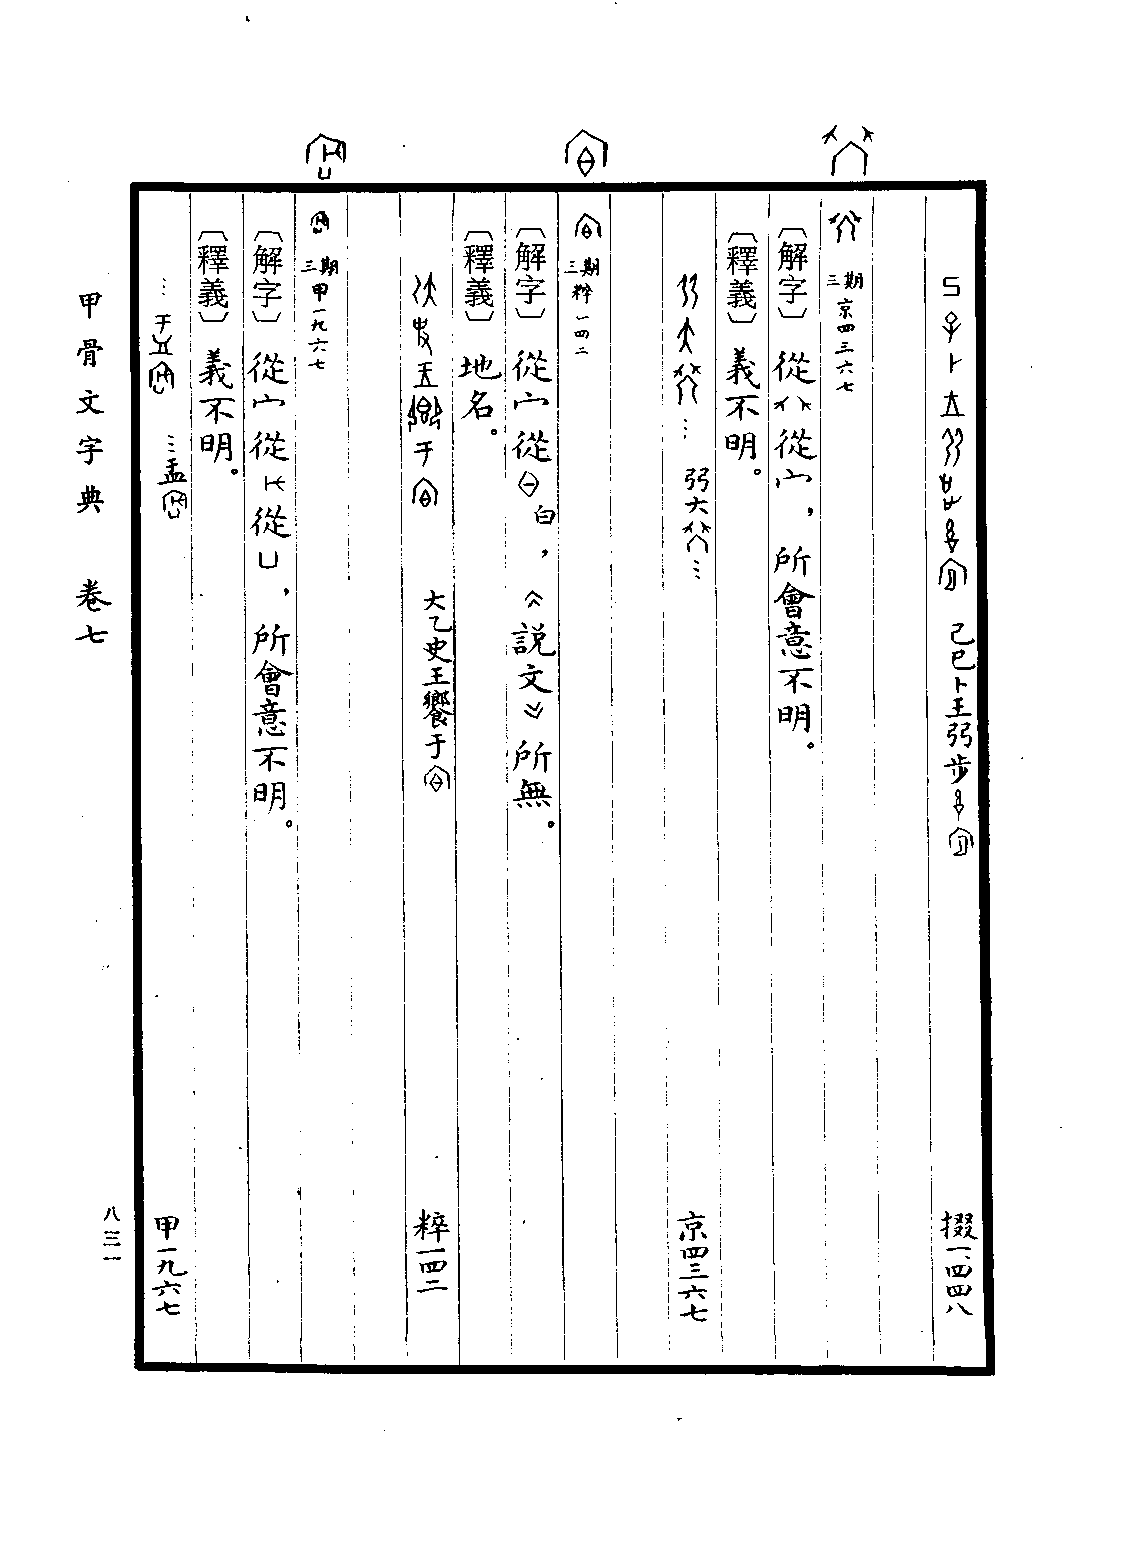 己巳卜王弜步
掇一、四四八
三期 京四三六七
〔解字〕 從 從宀，所會意不明。
〔釋義〕 義不明。
… 弜大 …
京四三六七
三期 粹一四二
〔解字〕 從宀從 白，《説文》所無。
〔釋義〕 地名。
大乙史王饗于
粹一四二
三期 甲一九六七
〔解字〕 從宀從 從凵，所會意不明。
〔釋義〕 義不明。
… …盂
甲一九六七
甲骨文字典 卷七
八三一